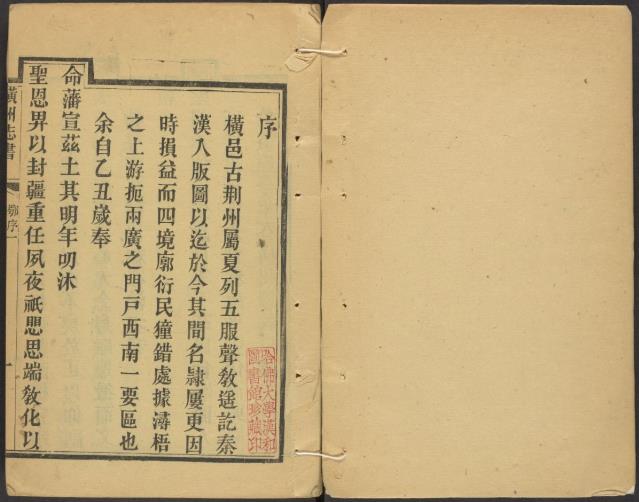 序
橫邑古荆州屬夏列五服聲敎遥訖秦
漢入版圖以迄於今其間名隷屢更因
時損益而四境廓衍民獞錯處據潯梧
之上游扼兩廣之門戸西南一要區也
余自乙丑歲奉
命藩宣茲土其明年叨沐
聖恩畀以封疆重任夙夜祇思思端敎化以
橫州志書
鄂序
一
哈佛大學漢和
圖書館珍藏印